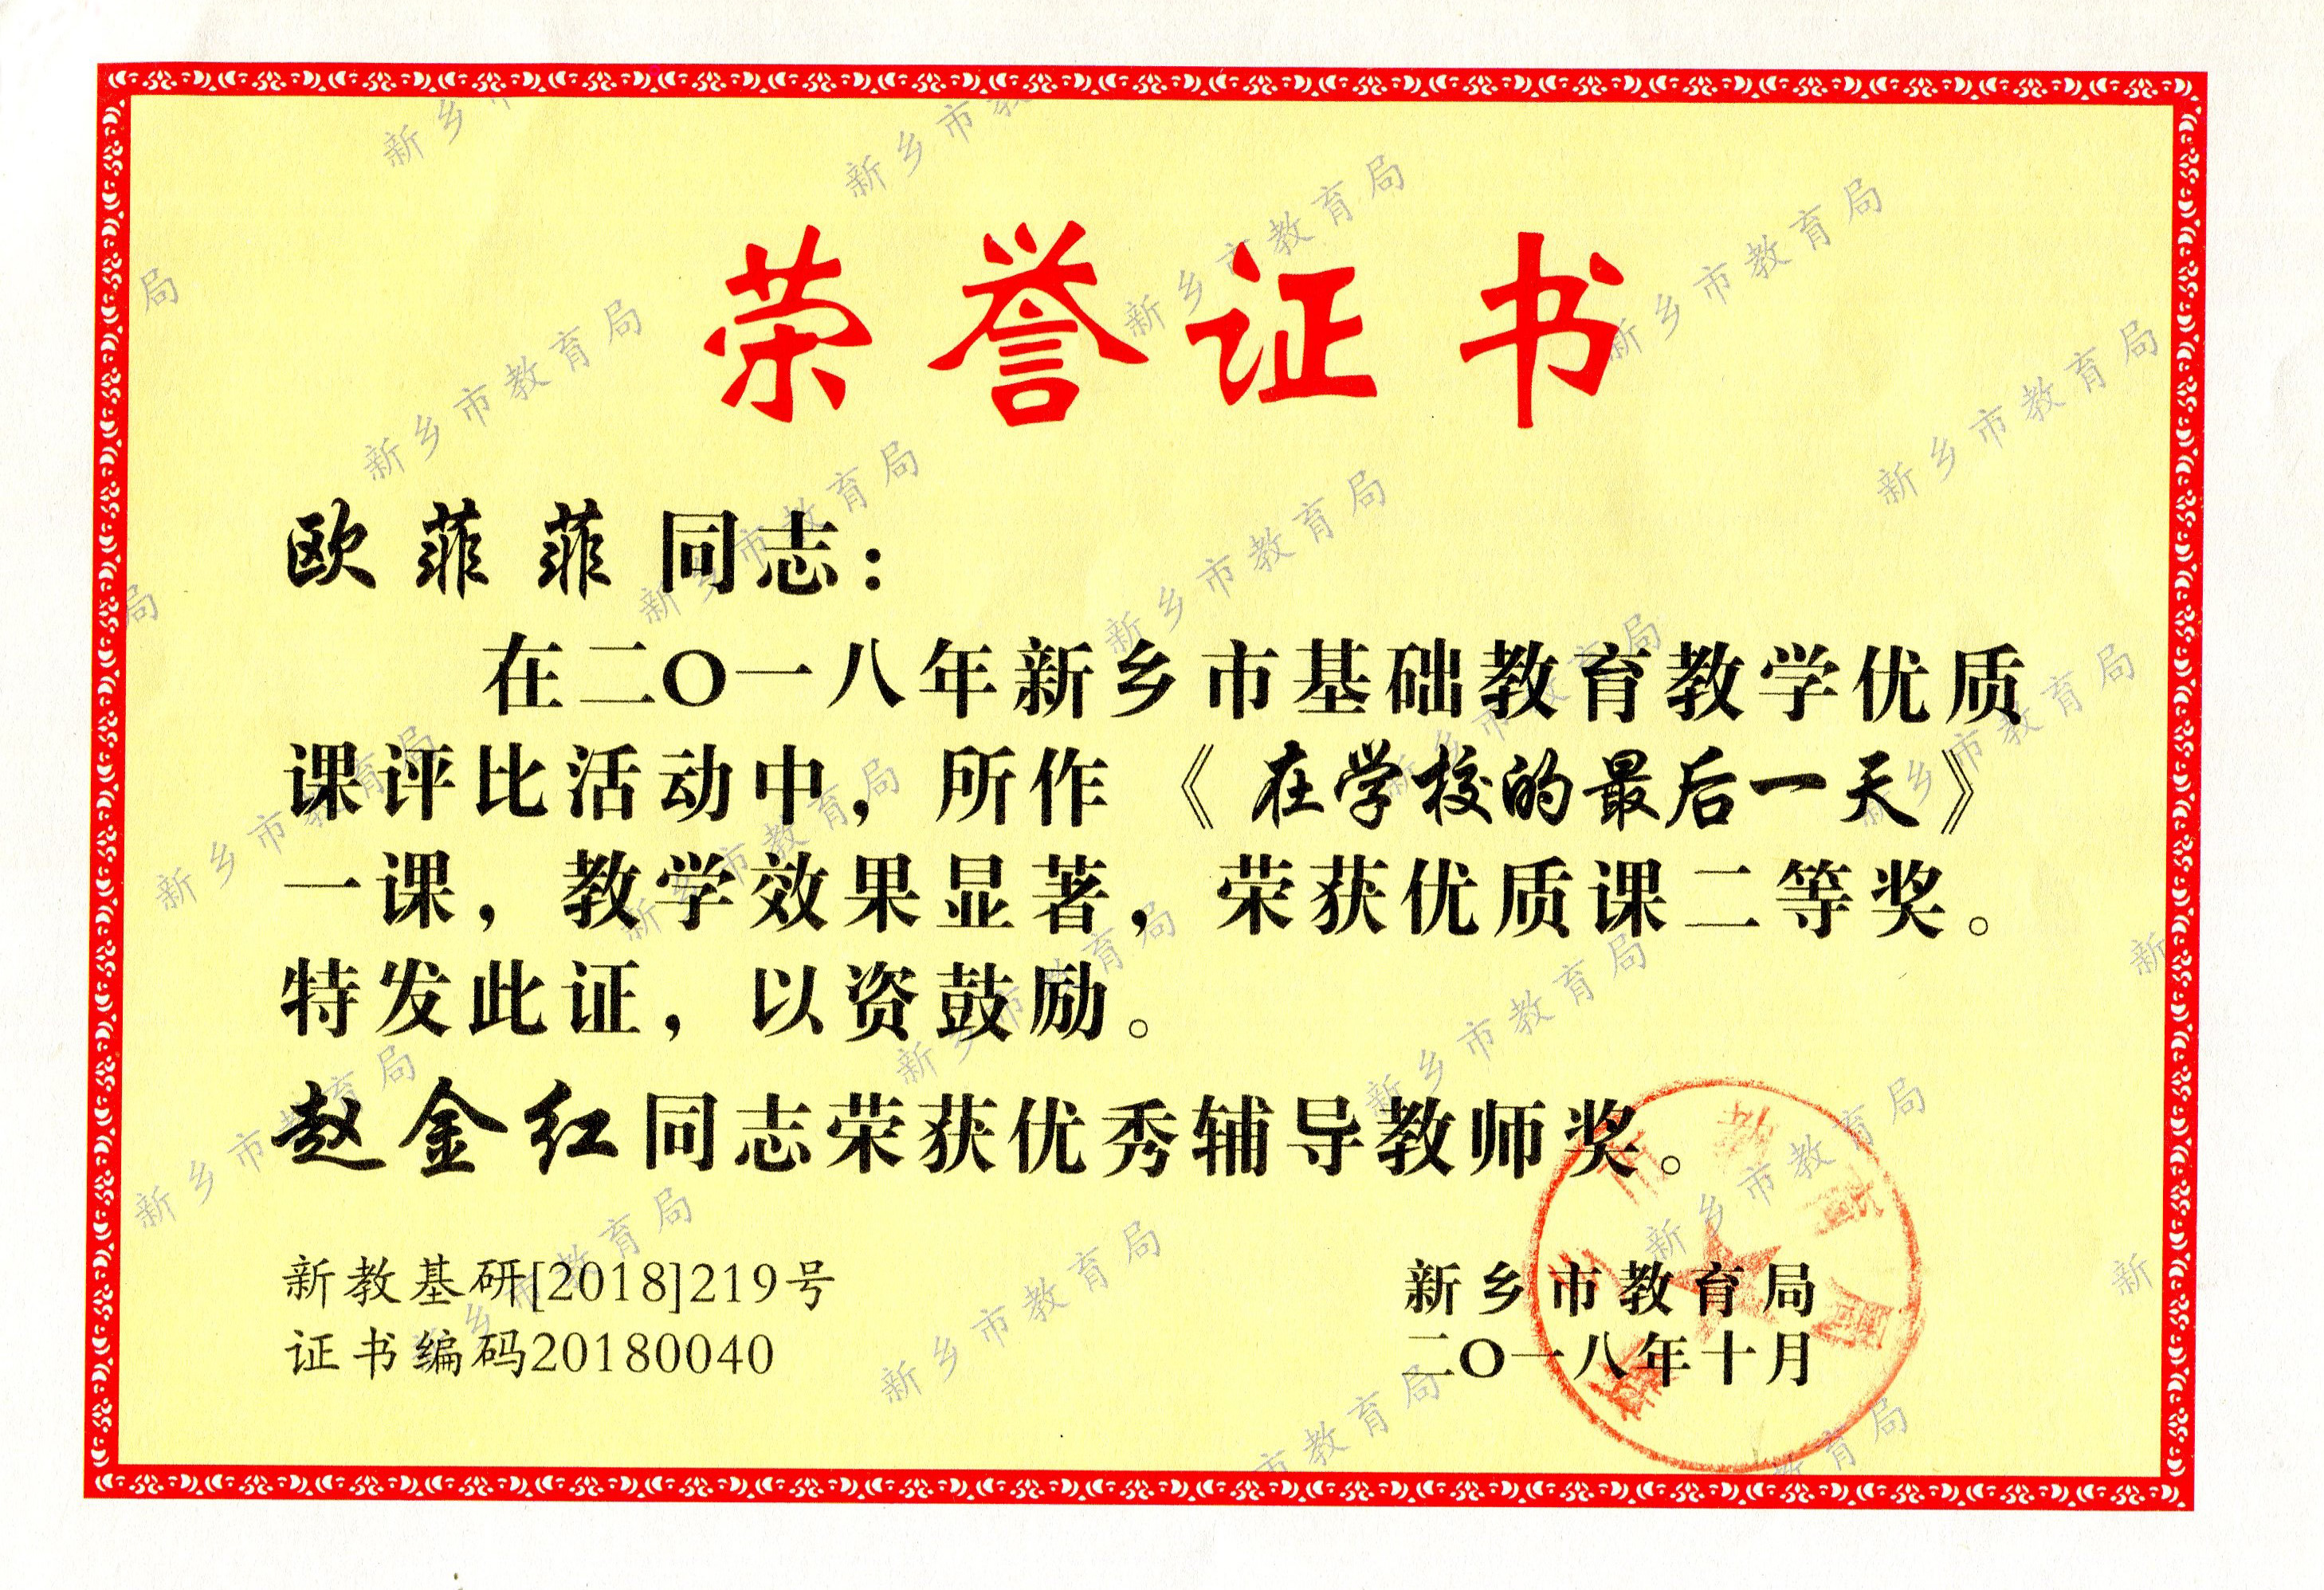 荣誉证书
欧菲菲同志：
在二〇一八年新乡市基础教育教学优质
课评比活动中，所作《在学校的最后一天》
一课，教学效果显著，荣获优质课二等奖。
特发此证，以资鼓励。
赵金红同志荣获优秀辅导教师奖。
新教基研[2018]219号
证书编码20180040
新乡市教育局
二〇一八年十月